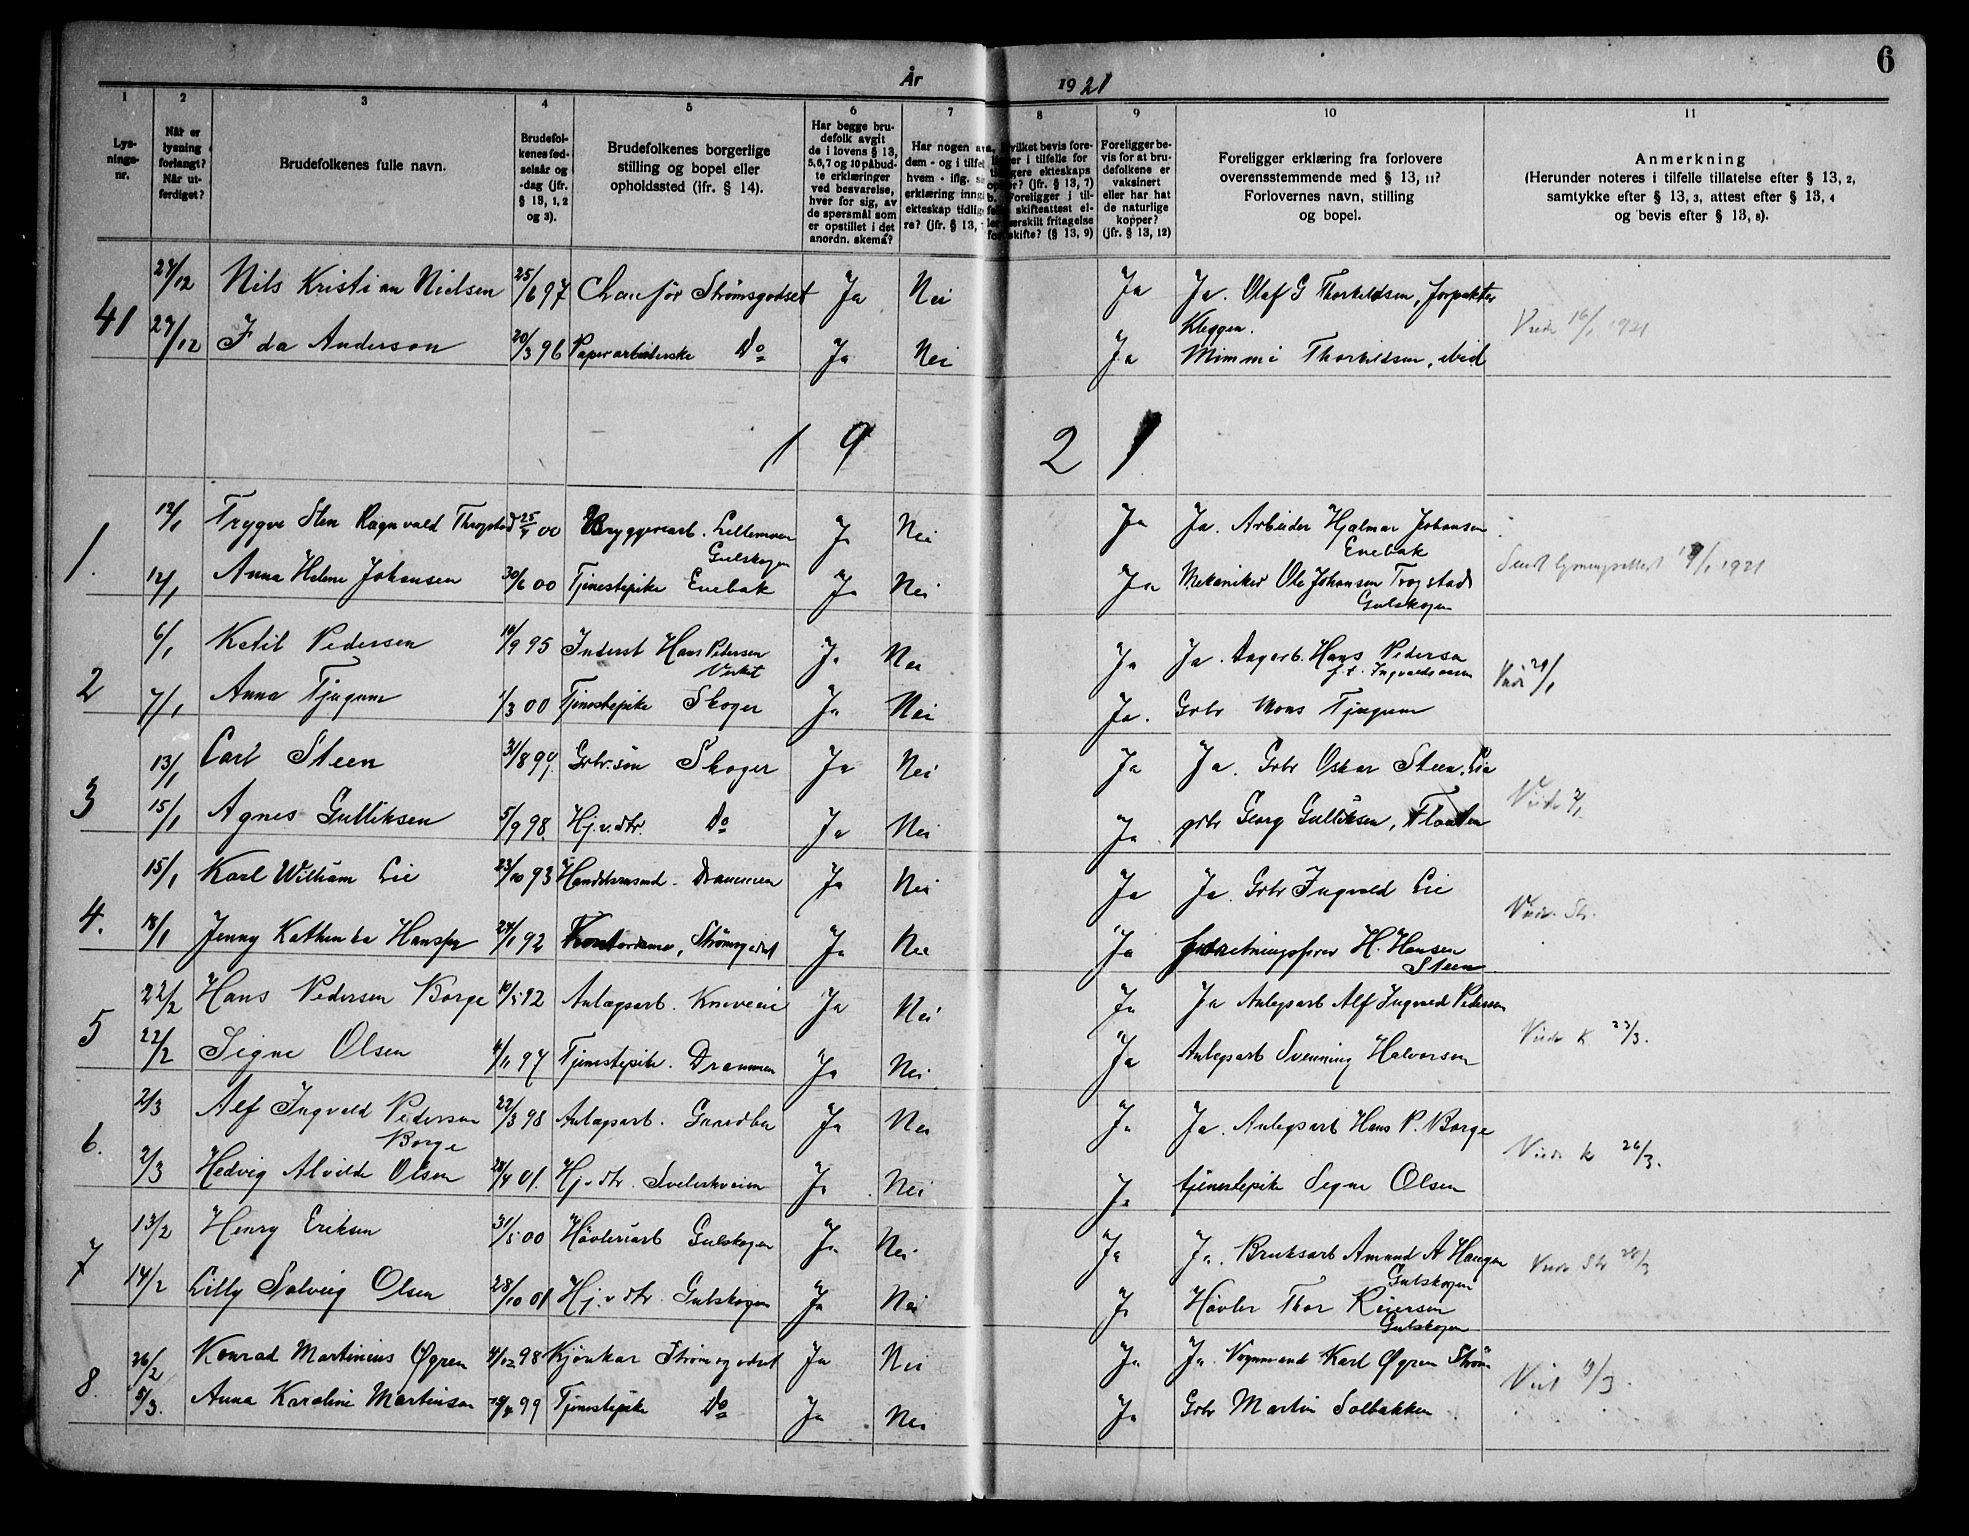 6
År 1921
1 2 3 4 5 6 7 8 9 10 11
Lysnings-nr.
Når er lysning forlangt? Når utferdiget?
Brudefolkenes fulle navn.
Brudefolkenes fødselsår og -dag (jfr. § 13, 1, 2 og 3).
Brudefolkenes borgerlige stilling og bopel eller opholdssted (ifr. § 14).
Har begge brudefolk avgit de i lovens § 13, 5, 6, 7 og 10 påbudte erklæringer ved besvarelse, hver for sig, av de spørsmål som er opstillet i det anordn. skema?
Foreligger bevis for at brudefolkene er vaksinert eller har hat de naturlige kopper? (jfr. § 13, 12)
Foreligger erklæring fra forlovere overensstemmende med § 13, 11? Forlovernes navn, stilling og bopel.
Anmerkning (Herunder noteres i tilfelle tillatelse efter § 13, 2, samtykke efter § 13, 3, attest efter § 13, 4 og bevis efter § 13, 8).
41 27/12 Nils Kristian Nielsen 25/6 97 Chaufør Strømsgodset Ja Nei Ja Ja. Olaf G Thorkildsen, forpakter
Kleggen.
27/12 Ida Anderson 20/3 96 Papirarbeiderske Do Ja Nei Ja Mimmi Thorkildsen, ibid
Viede 16/1 1921
1 9 2 1
1. 12/1 Trygve Sten Ragnvald Thrygstad 25/4 00 Bryggeriarb. Lillemoen Ja Nei Ja Ja. Arbeider Hjalmar Johansen
Gulskogen Enebak
12/1 Anna Helene Johansen 30/6 00 Tjenestepike Enebak Ja Nei Ja Mekaniker Ole Johansen Trogstad
Gulskogen
Sendt lysningsattest 1921
2 6/1 Ketil Pedersen 16/9 95 Inderst Hans Pedersen Ja Nei Ja Ja. Dagarb. Hans Pedersen
7/1 Anna Tjugum 1/3 00 Tjenestepike Skoger Ja Nei Ja. Grbr Mons Tjugum
Viede 29/1
3 13/1 Carl Steen 31/8 99. Grbr.søn Skoger Ja Nei Ja Ja. Grbr Oskar Steen, Lie
15/1 Agnes Gulliksen 5/9 98. Hj.v.dtr. Do Ja Nei Ja grbr Georg Gulliksen, Flaaten
Viede
4. 15/1 Karl William Lie 23/10 93 Handelsmand. Drammen Ja Nei Ja Ja Grbr Ingvald Lie
18/1 Jenny Kathinka Hansen 24/1 92 Kontordame, Strømsgodset Ja Nei Ja forretningsfører H. Hansen
Steen
Viede. Str.
5 22/2 Hans Pedersen Borge 10/5 92 Anlægsarb. Kniveveie Ja Nei Ja Ja Anlegsarb Alf Ingvald Pedersen
22/2 Signe Olsen 4/11 97 Tjenestepike. Drammen Ja Nei Ja Anlegsarb Svenning Halvorsen
Viede k 23/3.
6. 2/3 Alf Ingvald Pedersen 22/3 98 Anlægsarb. Ja Nei Ja Ja. Anlegsarb Hans P. Borge
Borge
2/3 Hedvig Alvilde Olsen 28/4 01. Hj.v.dtr. Svelvikveien Ja Nei Ja tjenestepike Signe Olsen
Viede k 26/3.
7 13/2 Henry Eriksen 31/5 00 Høvleriarb Gulskogen Ja Nei Ja Ja. Bruksarb Amund A Haugen
Gulskogen
14/2 Lilly Solveig Olsen 28/10 01 Hj.v.dtr. Gulskogen Ja Nei Ja Høvler Thor Reiersen
Gulskogen
Viede Str 28/3
8. 26/2 Konrad Martinius Øgren 4/12 98 Kjørekar Strømsgodset Ja Nei Ja Ja. Vognmand Karl Øgren Strøm
5/3. Anna Karoline Martinsen 99 Tjenestepike Do Ja Nei Ja Grbr Martin Solbakken
Viet 19/3.